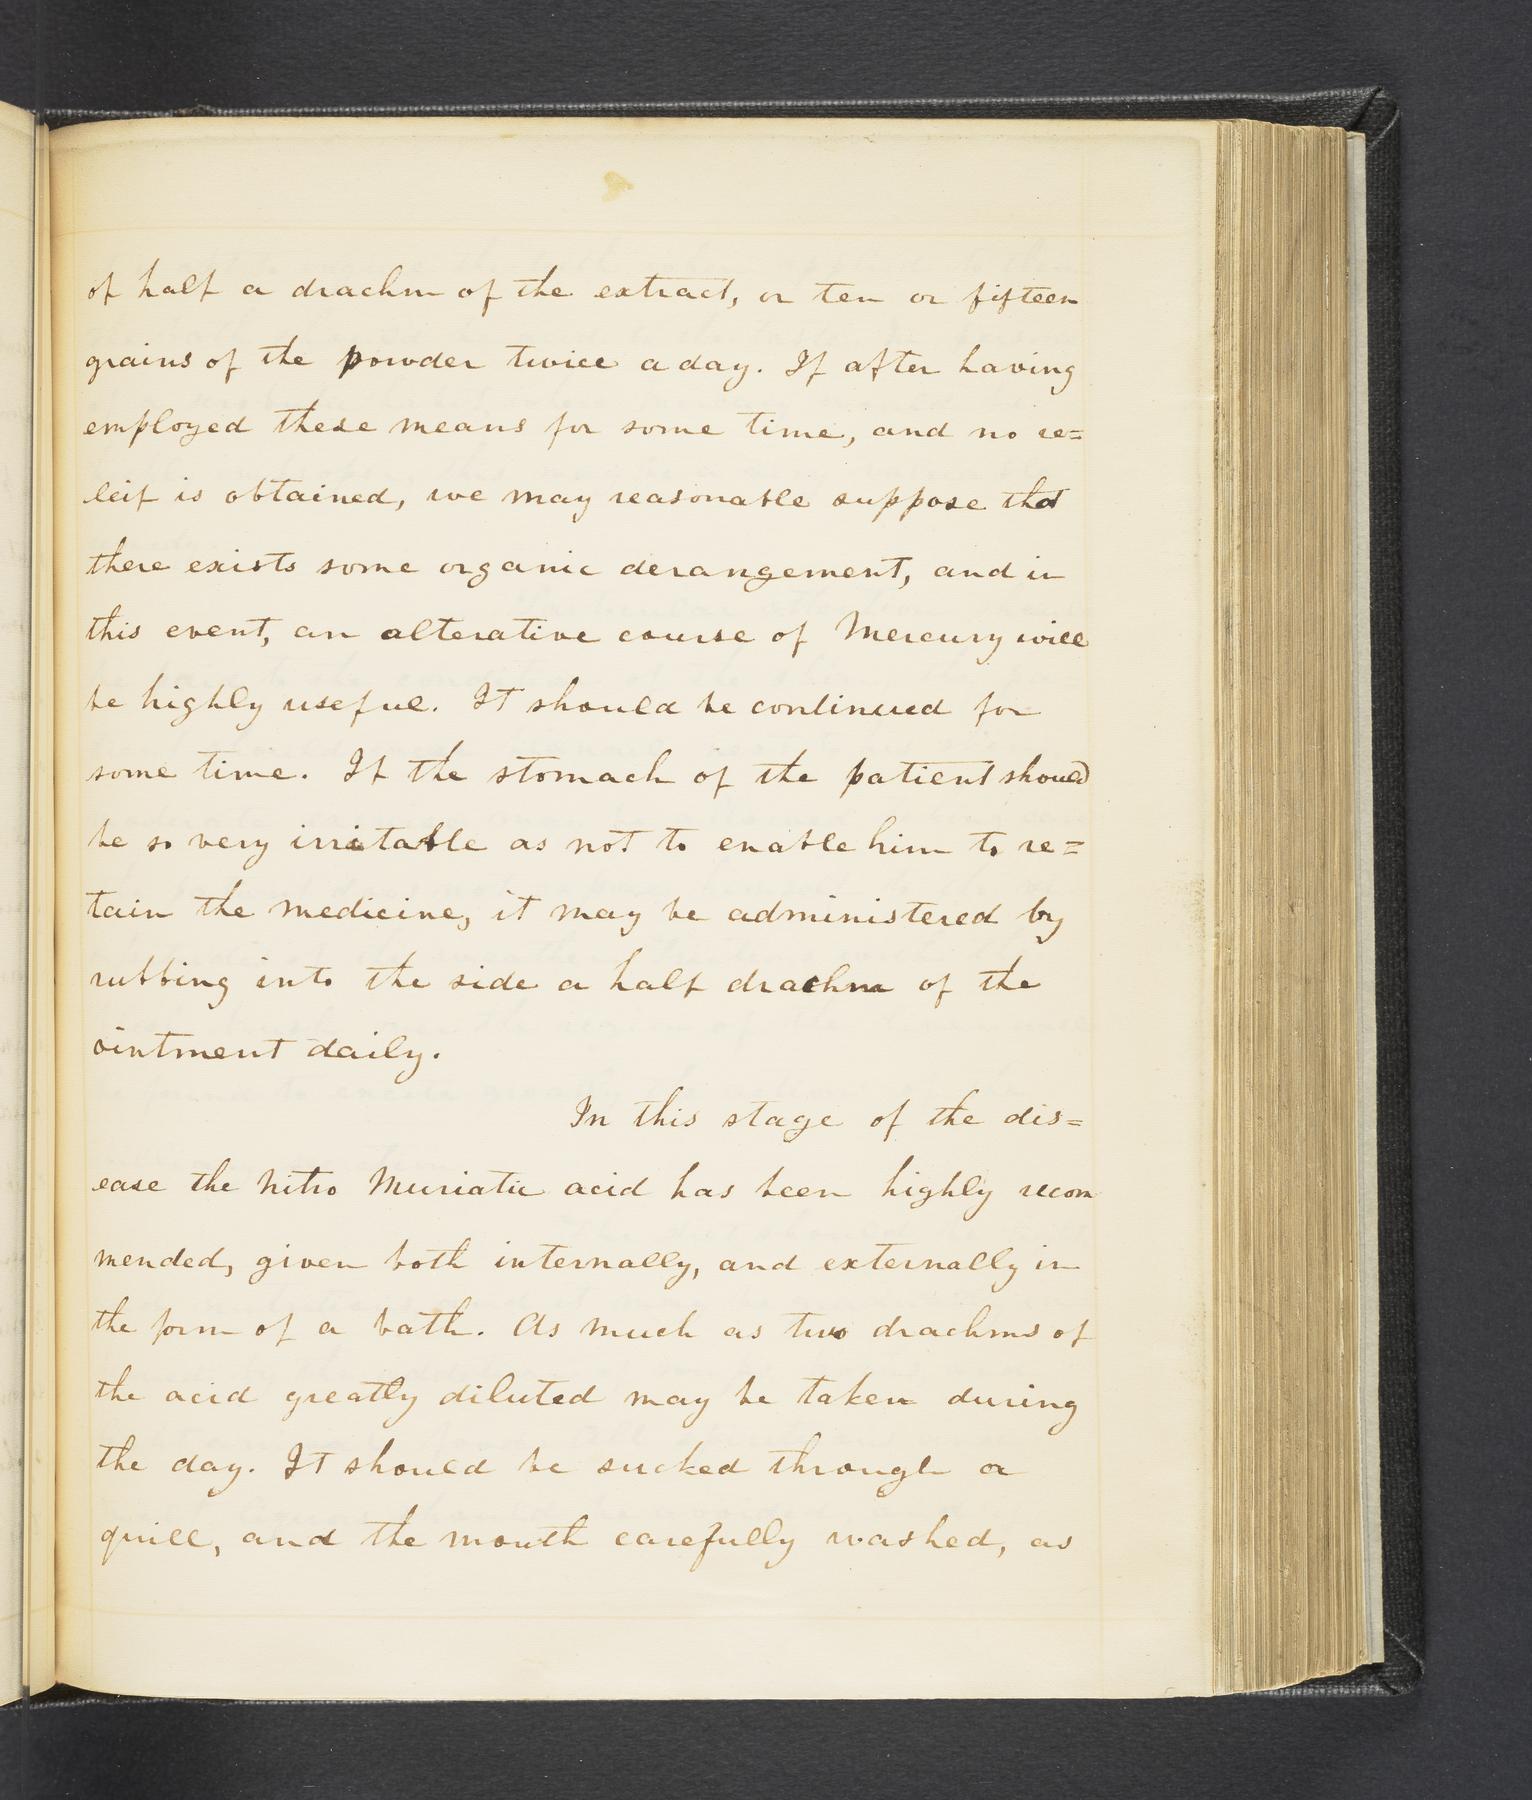 of half a drachm of the extract, or ten or fifteen
grains of the powder twice a day. If after having
employed these means for some time, and no re=
leif is obtained, we may reasonable suppose that
there exists some organic derangement, and in
this event, an alterative course of Mercury will
be highly useful. It should be continued for
some time. If the stomach of the patient should
be so very irritable as not to enable him to re=
tain the medicine, it may be administered by
rubbing into the side a half drachm of the
ointment daily.
In this stage of the dis=
ease the Nitro Muriatic acid has been highly recom
mended, given both internally, and externally in
the form of a bath. As much as two drachms of
the acid greatly diluted may be taken during
the day. It should be sucked through a
quill, and the mouth carefully washed, as